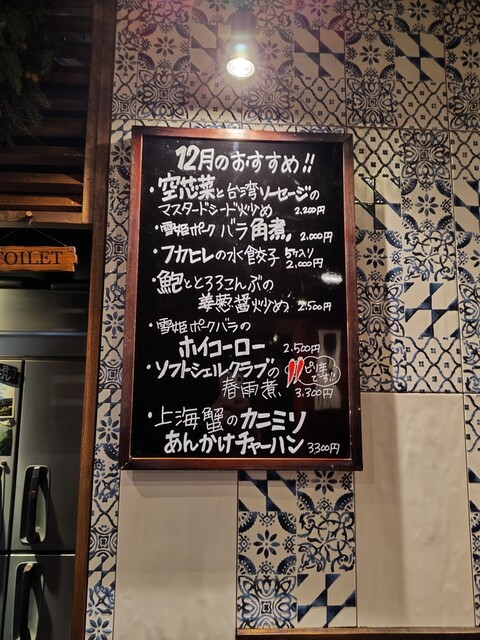 12月のおすすめ!!
・空芯菜と台湾ソーセージの
マスタードシード炒め 2.200円
・雪姫ポークバラ角煮。 2.000円
・フカヒレの水餃子 5ケ入り
2.000円
・鮑ととろろこんぶの
姜葱醤炒め 2.500円
・雪姫ポークバラの
ホイコーロー 2.500円
・ソフトシェルクラブの ピリ辛
です!!
春雨煮 3.300円
・上海蟹のカニミソ
あんかけチャーハン 3300円
TOILET